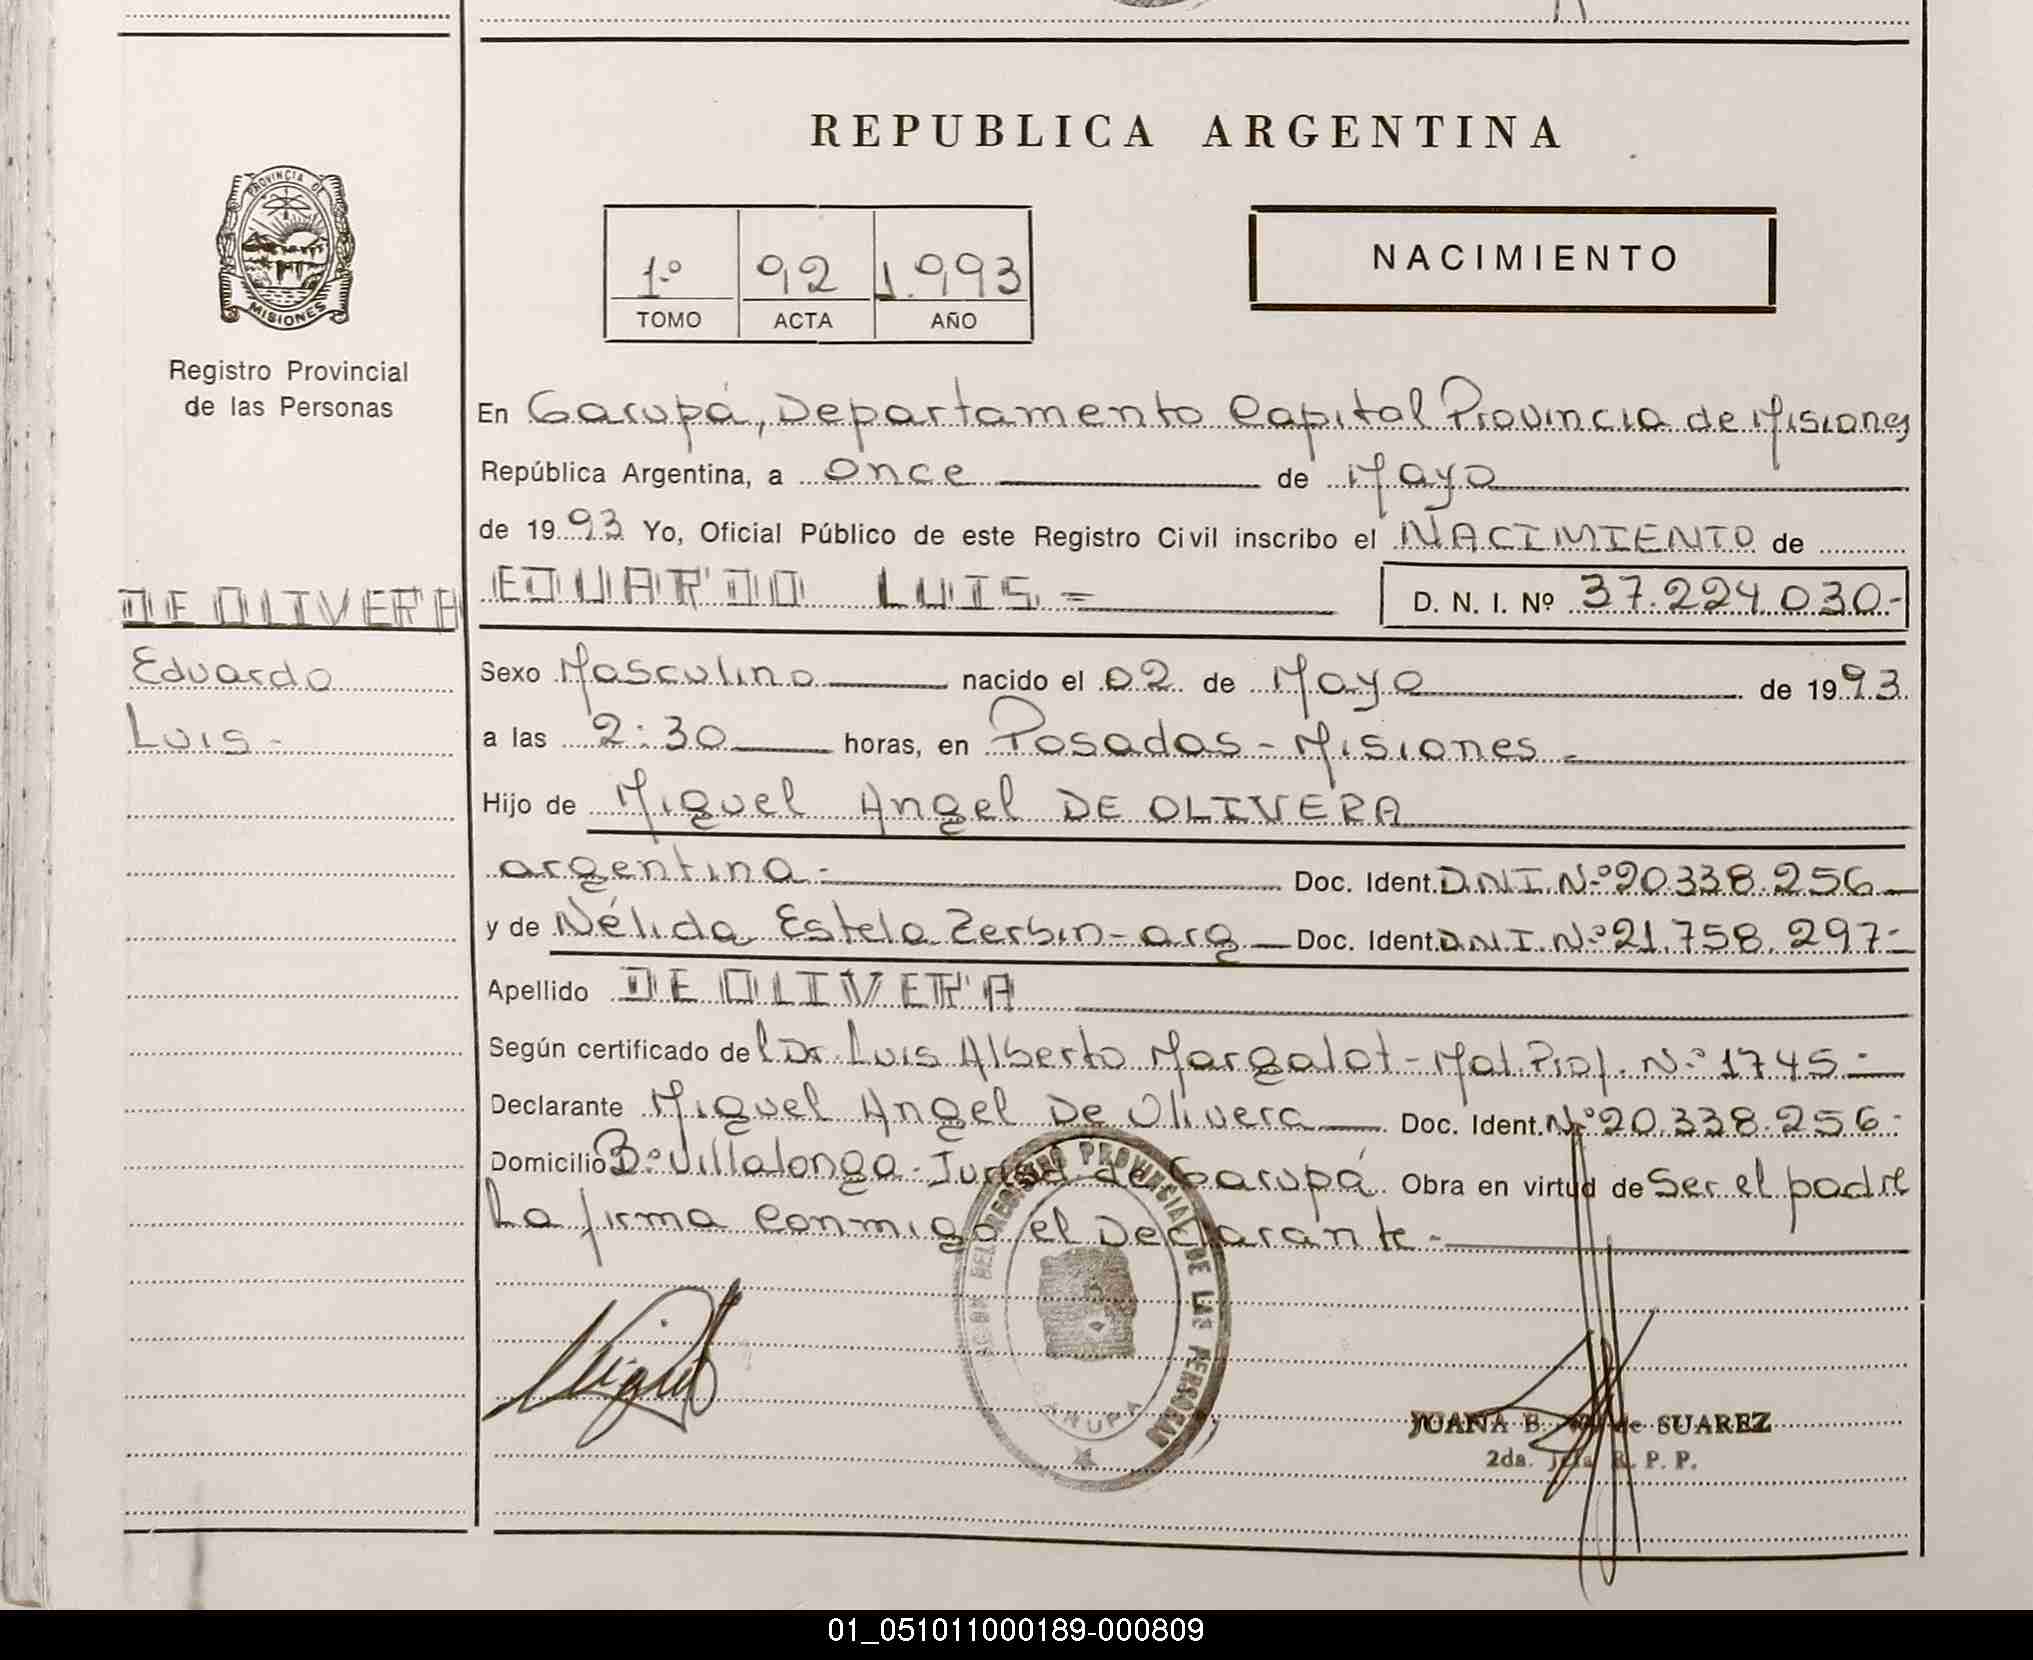 REPUBLICA ARGENTINA
PROVINCIA DE
MISIONES
Registro Provincial
de las Personas
1º 92 1.993
TOMO ACTA AÑO
NACIMIENTO
En Garupá, Departamento Capital Provincia de Misiones
República Argentina, a once de Mayo
de 1993 Yo, Oficial Público de este Registro Civil inscribo el NACIMIENTO de
DE OLIVERA
Eduardo
Luis-
EDUARDO LUIS.= D. N. I. Nº 37.224.030-
Sexo Masculino nacido el 02 de Mayo de 1993
a las 2:30 horas, en Posadas - Misiones -
Hijo de Miguel Angel DE OLIVERA
argentina.- Doc. Ident. D.N.I. Nº 20.338.256
y de Nélida Estela Zerbin - arg Doc. Ident. D.N.I. Nº 21.758.297-
Apellido DE OLIVERA
Según certificado del Dr. Luis Alberto Margalot - Mat. Prof. Nº 1745-
Declarante Miguel Angel De Olivera Doc. Ident. Nº 20.338.256-
Domicilio Bº Villalonga- Jurisd de Garupá Obra en virtud de Ser el padre
La firma conmigo el Declarante.-
REGISTRO PROVINCIAL DE LAS PERSONAS
GARUPA
JUANA B. de SUAREZ
2da. Jefa R. P. P.
01_051011000189-000809